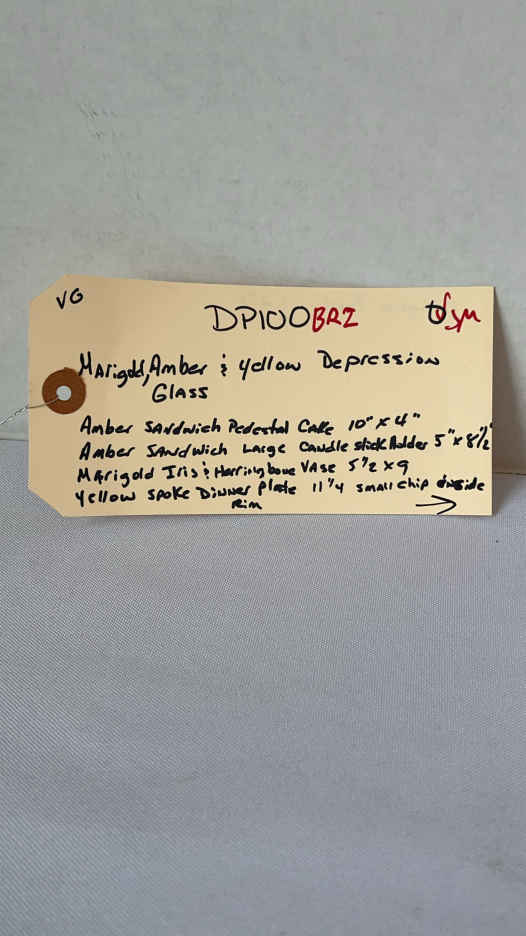 VG
DP100BRI
Marigold, Amber & Yellow Depression
GLASS
Amber Sandwich Pedestal Cake 10" x 4"
Amber Sandwich Large Candlestick Holder 5" x 8 1/2"
Marigold Iris & Herringbone Vase 5 1/2 x 9
Yellow Spoke Dinner Plate 11 1/4 small chip inside
Rim
→